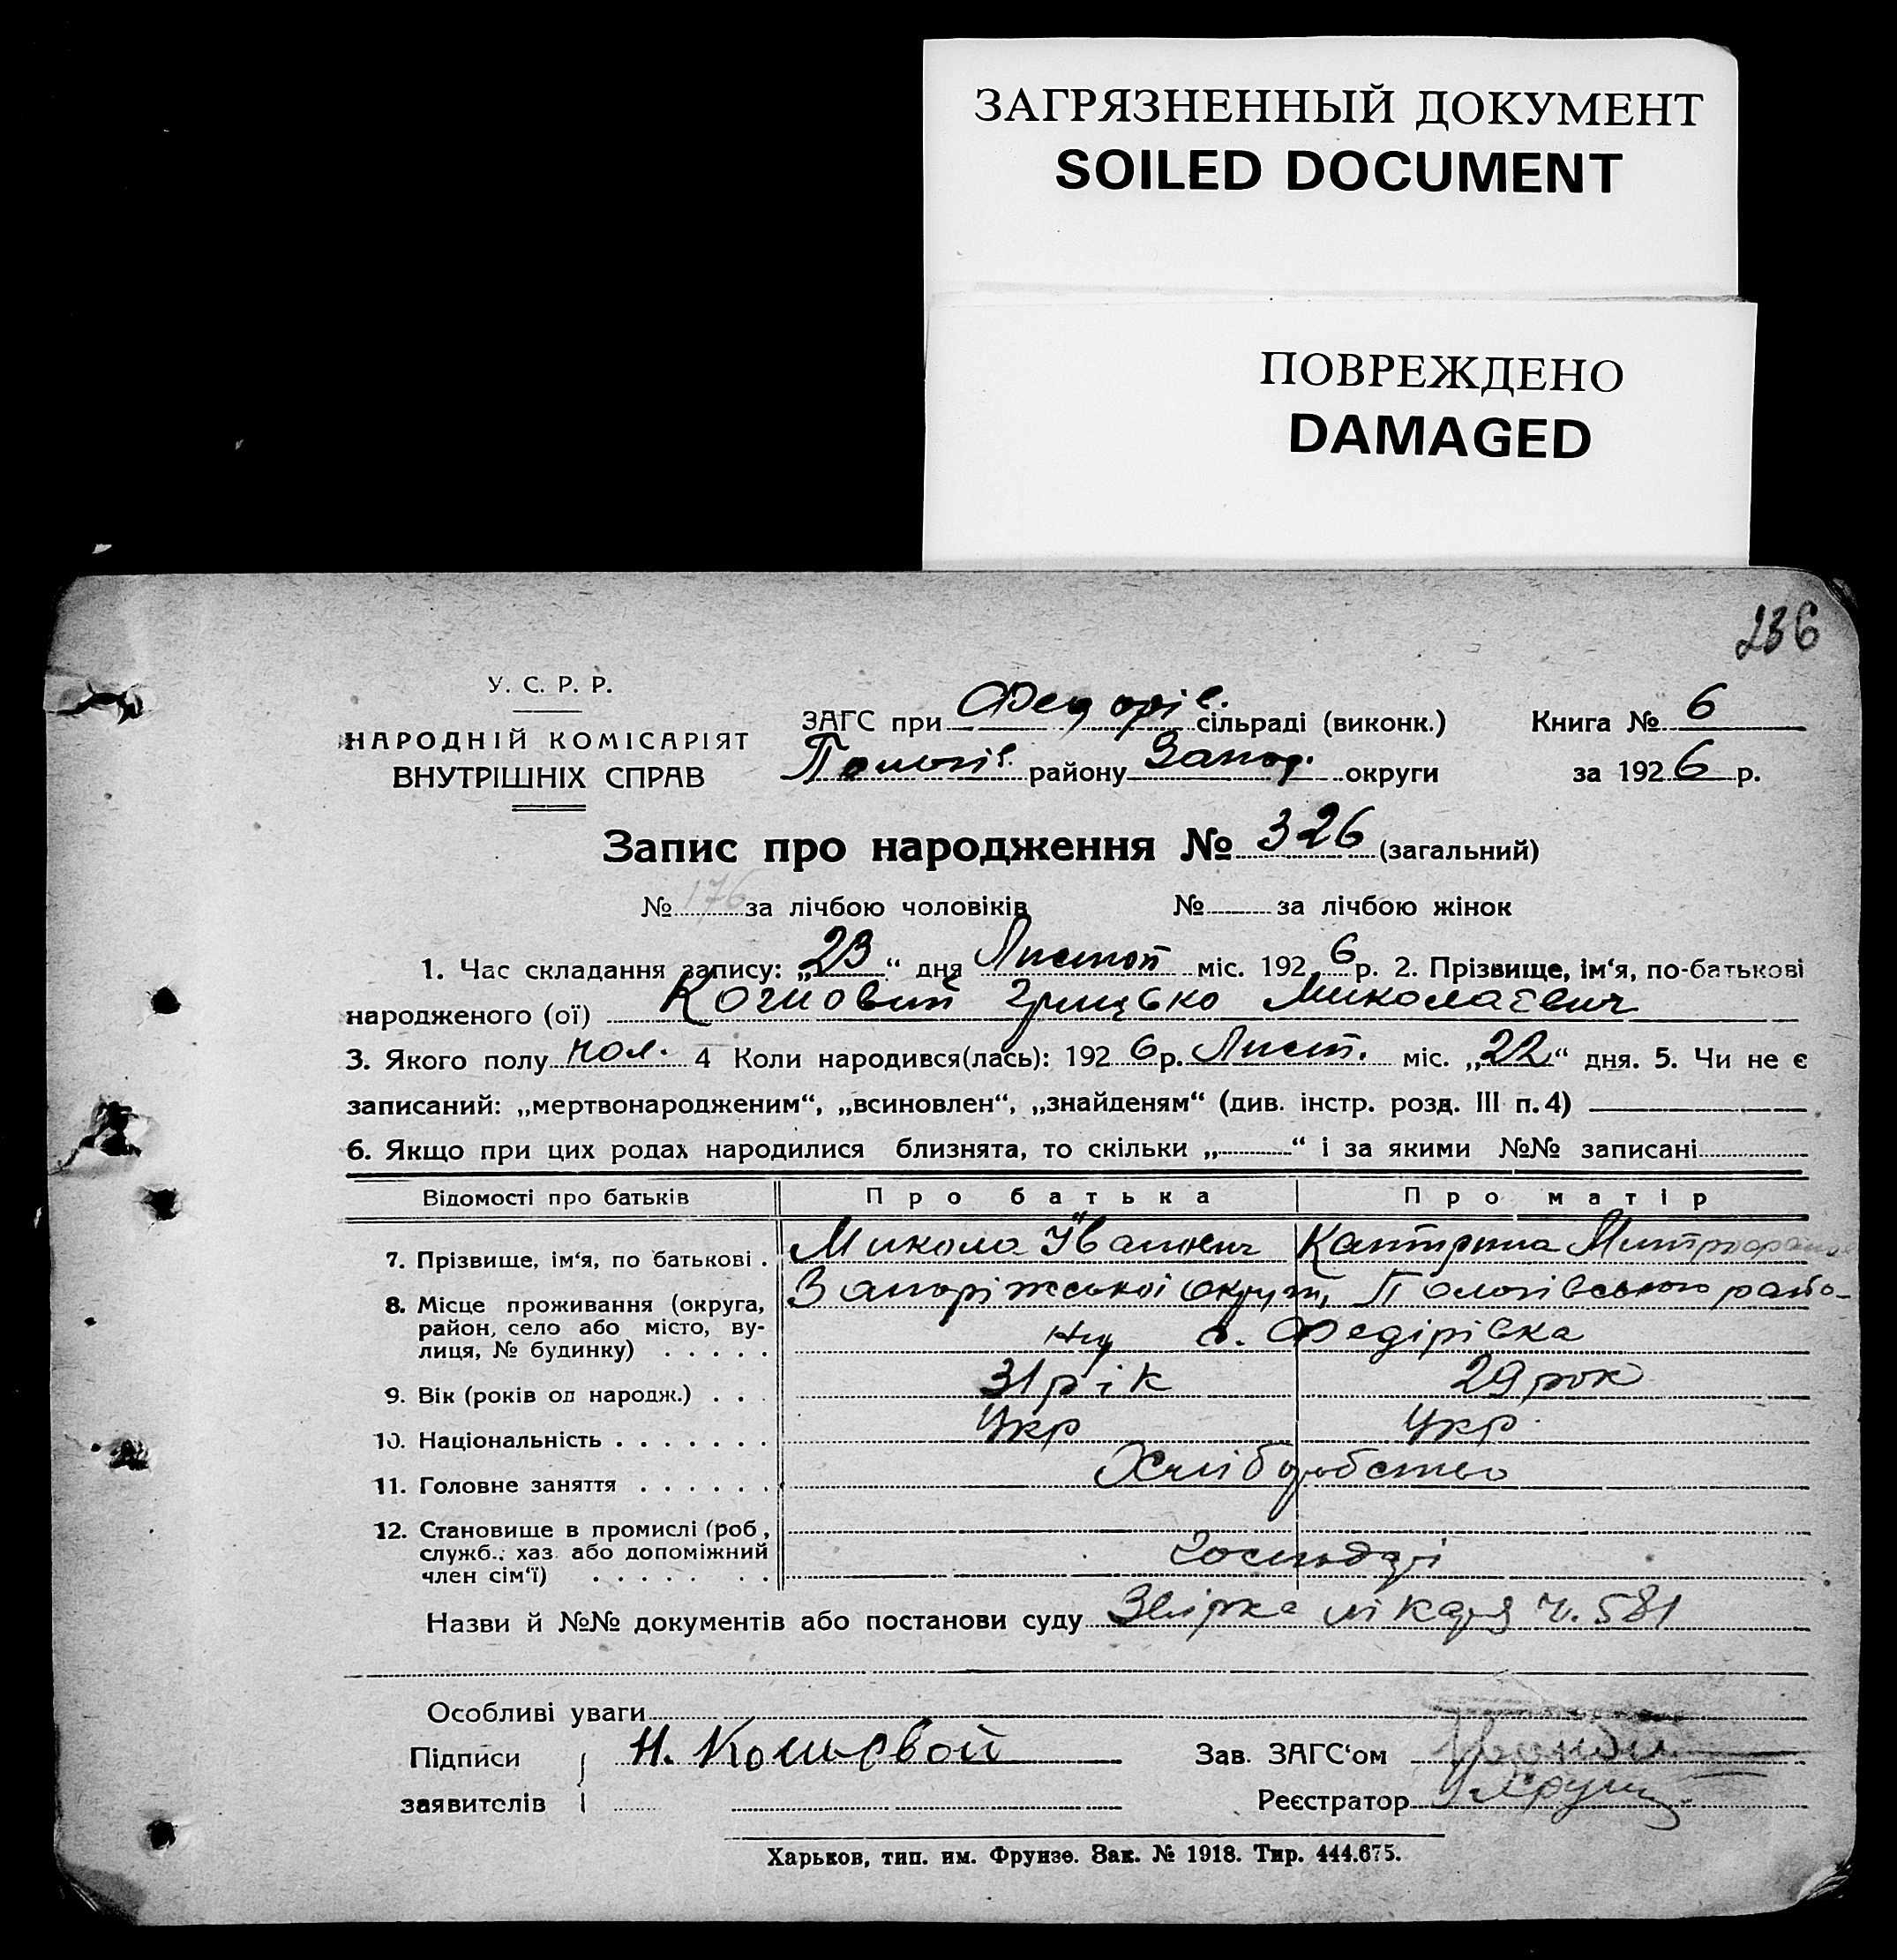 ЗАГРЯЗНЕННЫЙ ДОКУМЕНТ
SOILED DOCUMENT
ПОВРЕЖДЕНО
DAMAGED
236
У. С. Р. Р.
НАРОДНІЙ КОМІСАРІЯТ
ВНУТРІШНІХ СПРАВ
ЗАГС при Федорів. сільраді (виконк.) Книга № 6
Пологів. району Запор. округи за 1926 р.
Запис про народження № 326 (загальний)
№ 176 за лічбою чоловіків № за лічбою жінок
1. Час складання запису: „23“ дня Листоп міс. 1926 р. 2. Прізвище, ім‘я, по-батькові
народженого (ої) Грицько Миколаєвич
3. Якого полу чол. 4 Коли народився(лась): 1926 р. Лист. міс. „22“ дня. 5. Чи не є
записаний: „мертвонародженим“, „всиновлен“, „знайденям“ (див. інстр. розд. III п. 4)
6. Якщо при цих родах народилися близнята, то скільки „ “ і за якими №№ записані
Відомості про батьків Про батька Про матір
7. Прізвище, ім‘я, по батькові . Микола Іванович Катирина
8. Місце проживання (округа, район, село або місто, ву-лиця, № будинку) . . . . . Запоріжської округи, Пологівського райо-
ну с. Федірівка
9. Вік (років од народж.) . . . 31 рік 29 рок
10. Національність . . . . . . . Укр Укр.
11. Головне заняття . . . . . . Хліборобство
12. Становище в промислі (роб., служб.; хаз. або допоміжний член сім‘ї) . . . . . . . Господарі
Назви й №№ документів або постанови суду лікаря ч. 581
Особливі уваги
Підписи Н. Зав. ЗАГС‘ом
заявителів Реєстратор
Харьков, тип. им. Фрунзе. Зак. № 1918. Тир. 444.675.